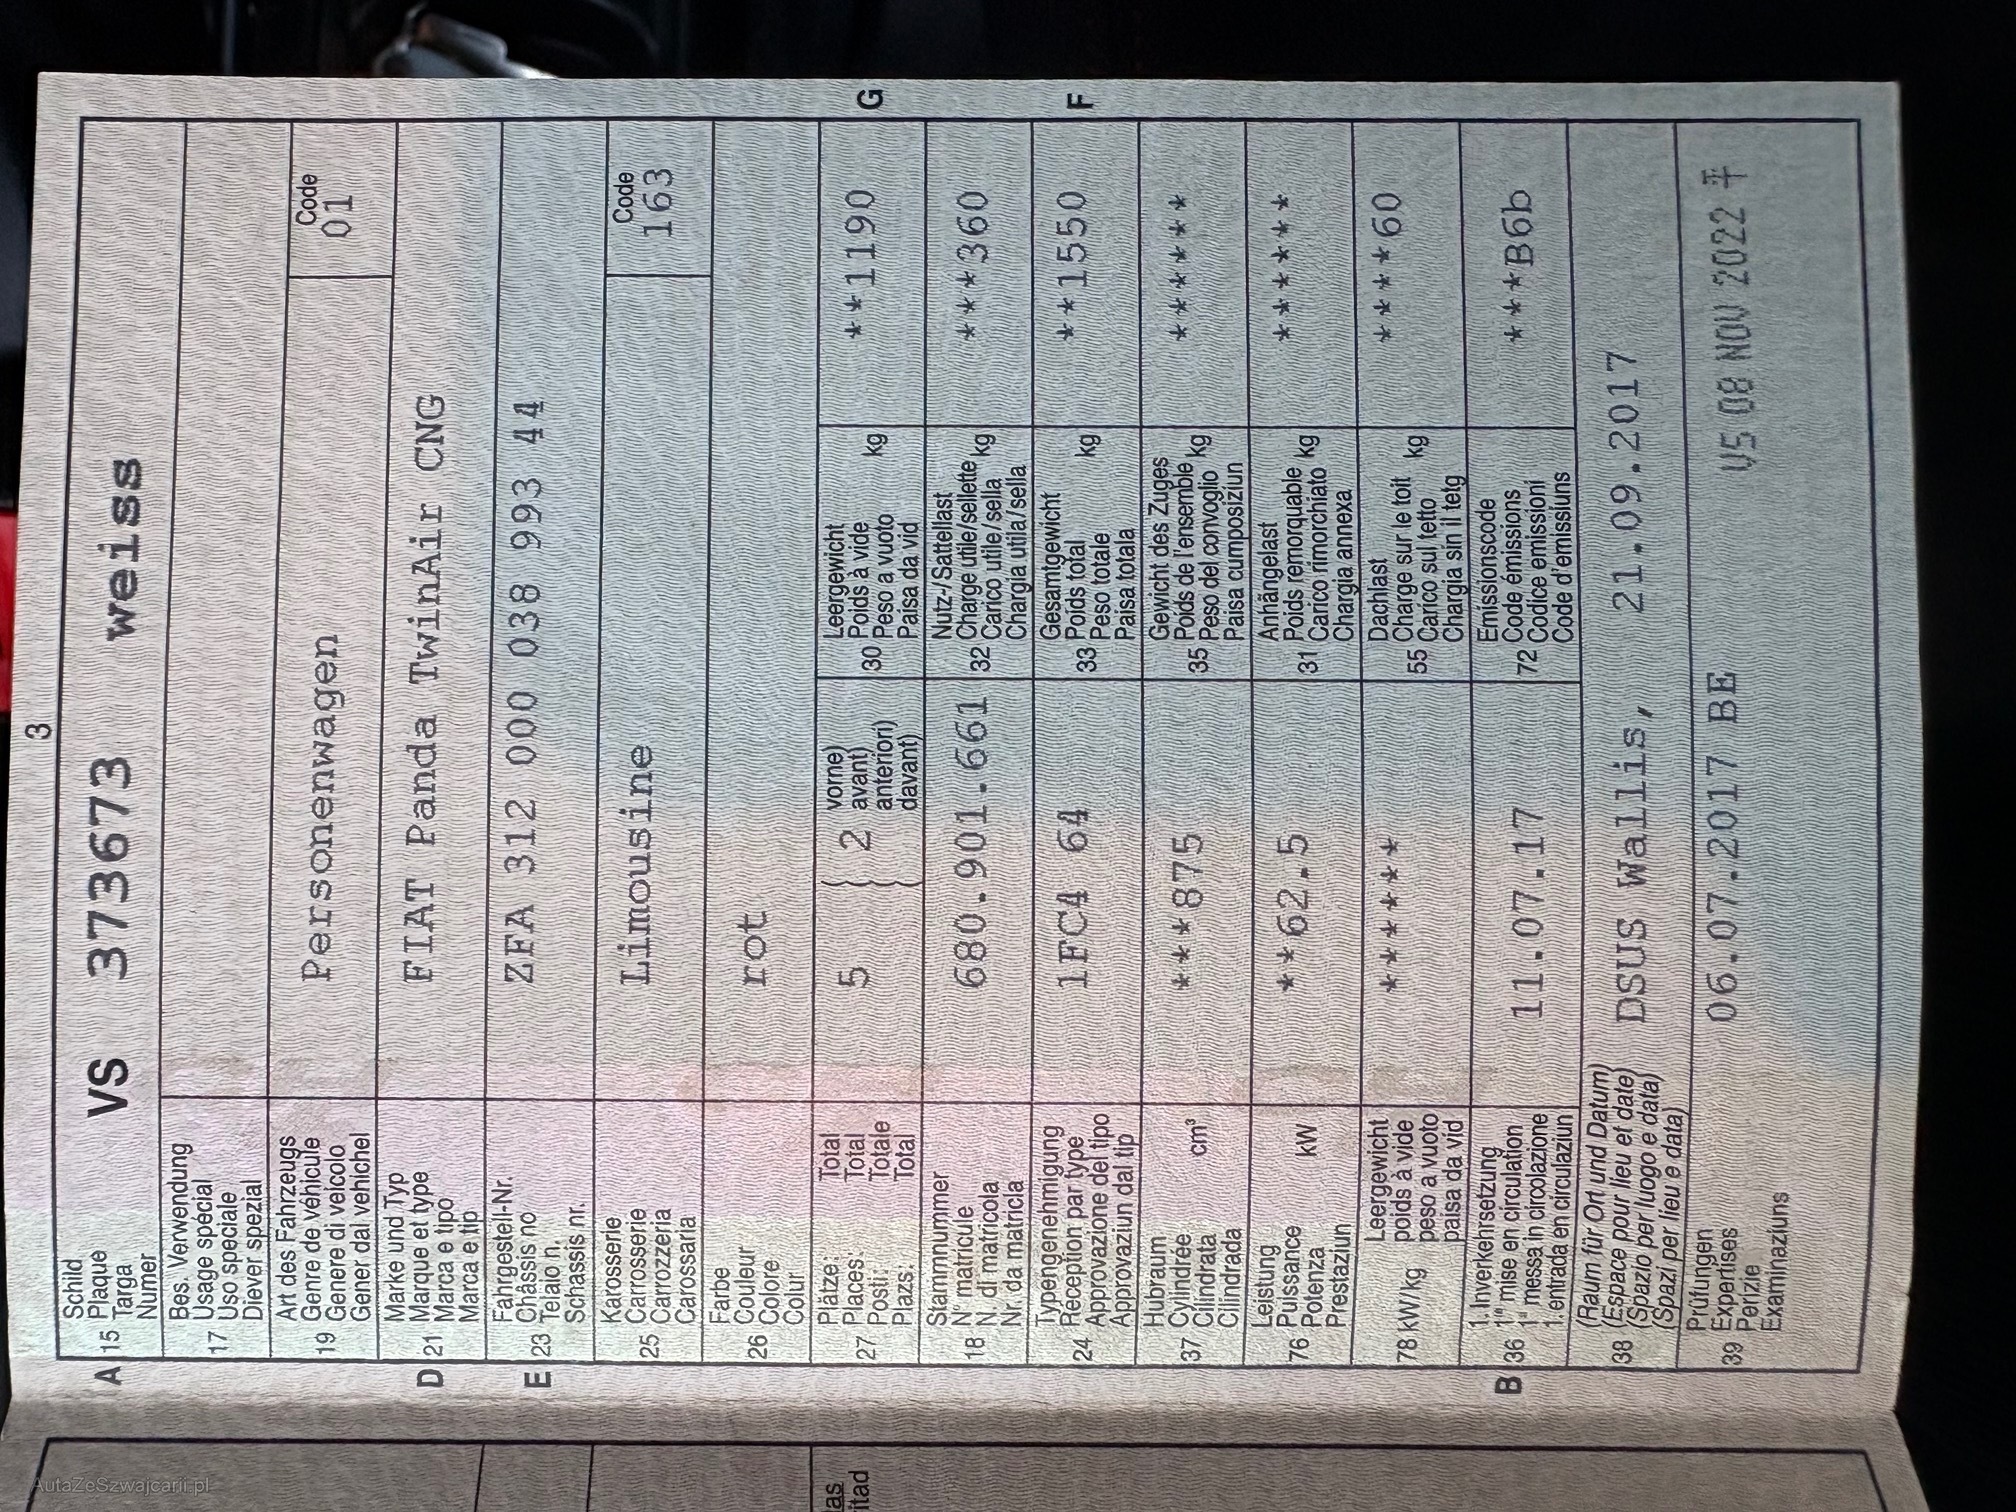 3
Schild
A 15 Plaque
Targa
Numer
VS 373673 weiss
Bes. Verwendung
17 Usage spécial
Uso speciale
Diever spezial
Art des Fahrzeugs
19 Genre de véhicule
Genere di veicolo
Gener dal vehichel
Personenwagen
Code
01
Marke und Typ
D 21 Marque et type
Marca e tipo
Marca e tip
FIAT Panda TwinAir CNG
Fahrgestell-Nr.
E 23 Châssis no
Telaio n.
Schassis nr.
ZFA 312 000 038 993 44
Karosserie
25 Carrosserie
Carrozzeria
Carossaria
Limousine
Code
163
Farbe
26 Couleur
Colore
Colur
rot
Plätze: Total
27 Places: Total
Posti: Totale
Plazs: Total
5 { 2
vorne)
avant)
anteriori)
davant)
Leergewicht
30 Poids à vide
Peso a vuoto kg
Paisa da vid
**1190 G
Stammnummer
18 N° matricule
N. di matricola
Nr. da matricla
680.901.661
Nutz-/Sattellast
32 Charge utile/sellette
Carico utile/sella kg
Chargia utila/sella
***360
Typengenehmigung
24 Réception par type
Approvazione del tipo
Approvaziun dal tip
1FC4 64
Gesamtgewicht
33 Poids total kg
Peso totale
Paisa totala
**1550 F
Hubraum
37 Cylindrée cm³
Cilindrata
Cilindrada
***875
Gewicht des Zuges
35 Poids de l'ensemble
Peso del convoglio kg
Paisa cumposiziun
*******
Leistung
76 Puissance kW
Potenza
Prestaziun
**62.5
Anhängelast
31 Poids remorquable
Carico rimorchiato kg
Chargia annexa
*******
78 kW/kg
Leergewicht
poids à vide
peso a vuoto
paisa da vid
******
Dachlast
55 Charge sur le toit kg
Carico sul tetto
Chargia sin il tetg
****60
1. Inverkehrsetzung
B 36 1re mise en circulation
1a messa in circolazione
1. entrada en circulaziun
11.07.17
Emissionscode
72 Code émissions
Codice emissioni
Code d'emissiuns
***B6b
(Raum für Ort und Datum)
38 (Espace pour lieu et date)
(Spazio per luogo e data)
(Spazi per lieu e data)
DSUS Wallis, 21.09.2017
Prüfungen
39 Expertises
Perizie
Examinaziuns
06.07.2017 BE VS 08 NOV 2022
las
itad
AutaZeSzwajcarii.pl